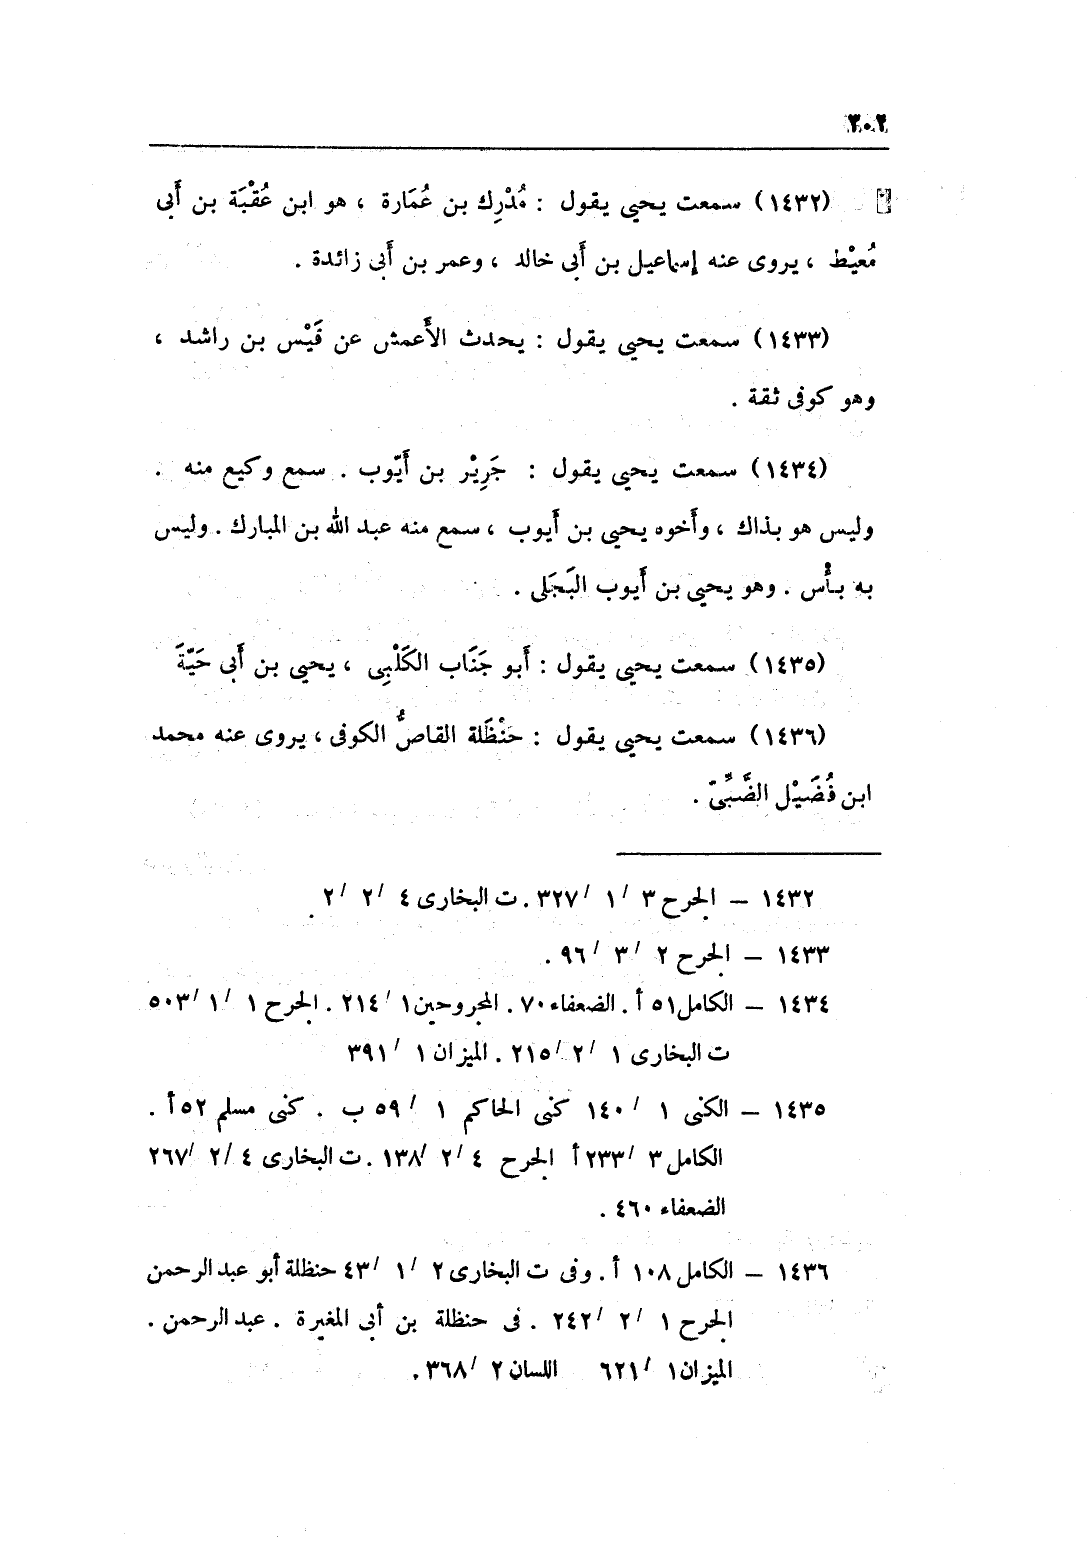 ٣٠٢
(١٤٣٢) سمعت يحيى يقول : مُدْرِك بن عُمَارة ، هو ابن عُقْبَة بن أَبى
مُعيْط ، يروى عنه إسماعيل بن أَبى خالد ، وعمر بن أَبى زائدة .
(١٤٣٣) سمعت يحيى يقول : يحدث الأَعمش عن قَيْس بن راشد ،
وهو كوفى ثقة .
(١٤٣٤) سمعت يحيى يقول : جَرِيْر بن أَيّوب . سمع وكيع منه .
وليس هو بذاك ، وأَخوه يحيى بن أَيوب ، سمع منه عبد الله بن المبارك . وليس
به بأْس . وهو يحيى بن أَيوب البَجَلى .
(١٤٣٥) سمعت يحيى يقول : أَبو جَنَاب الكَلْبِى ، يحيى بن أَبى حَيّةَ
(١٤٣٦) سمعت يحيى يقول : حَنْظَلة القاصُّ الكوفى ، يروى عنه محمد
ابن فُضَيْل الضَّبِّىّ .
١٤٣٢ – الجرح ٣ / ١ / ٣٢٧ . ت البخارى ٤ / ٢ / ٢ .
١٤٣٣ – الجرح ٢ / ٣ / ٩٦ .
١٤٣٤ – الكامل ٥١ أ . الضعفاء ٧٠ . المجروحين ١ / ٢١٤ . الجرح ١ / ١ / ٥٠٣
ت البخارى ١ / ٢ / ٢١٥ . الميزان ١ / ٣٩١
١٤٣٥ – الكنى ١ / ١٤٠ كنى الحاكم ١ / ٥٩ ب . كنى مسلم ٥٢ أ .
الكامل ٣ / ٢٣٣ أ الجرح ٤ / ٢ / ١٣٨ . ت البخارى ٤ / ٢ / ٢٦٧
الضعفاء ٤٦٠ .
١٤٣٦ – الكامل ١٠٨ أ . وفى ت البخارى ٢ / ١ / ٤٣ حنظلة أبو عبد الرحمن
الجرح ١ / ٢ / ٢٤٢ . فى حنظلة بن أبى المغيرة . عبد الرحمن .
الميزان ١ / ٦٢١ اللسان ٢ / ٣٦٨ .